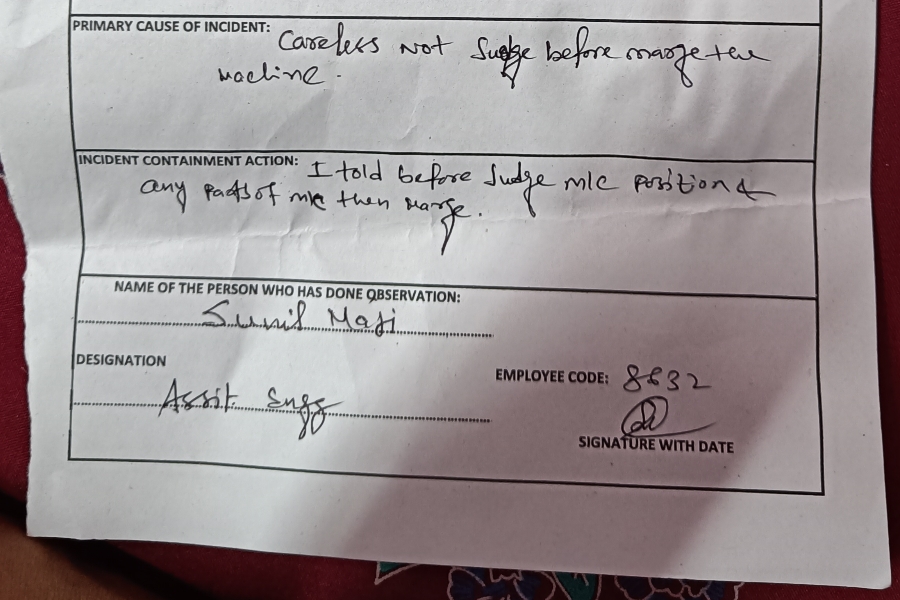 PRIMARY CAUSE OF INCIDENT:
Careless Not Judge before marge the
machine.
INCIDENT CONTAINMENT ACTION: I told before Judge m/c position &
any parts of m/c then marge.
NAME OF THE PERSON WHO HAS DONE OBSERVATION:
Sunil Maji
DESIGNATION
EMPLOYEE CODE: 8632
Assit Engg
SIGNATURE WITH DATE